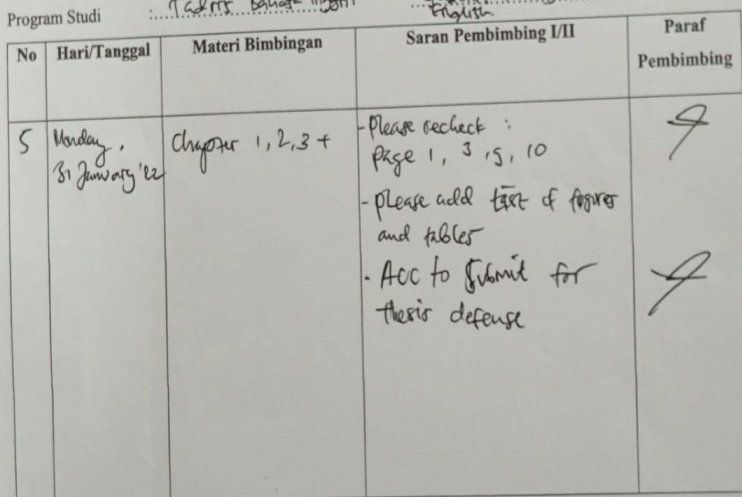 Program Studi : Tadris Bahasa Inggris
English
No Hari/Tanggal Materi Bimbingan Saran Pembimbing I/II Paraf Pembimbing
5 Monday, 31 January '22
Chapter 1, 2, 3 +
- Please recheck :
page 1, 3, 5, 10
- please add list of figures
and tables
- Acc to submit for
thesis defense